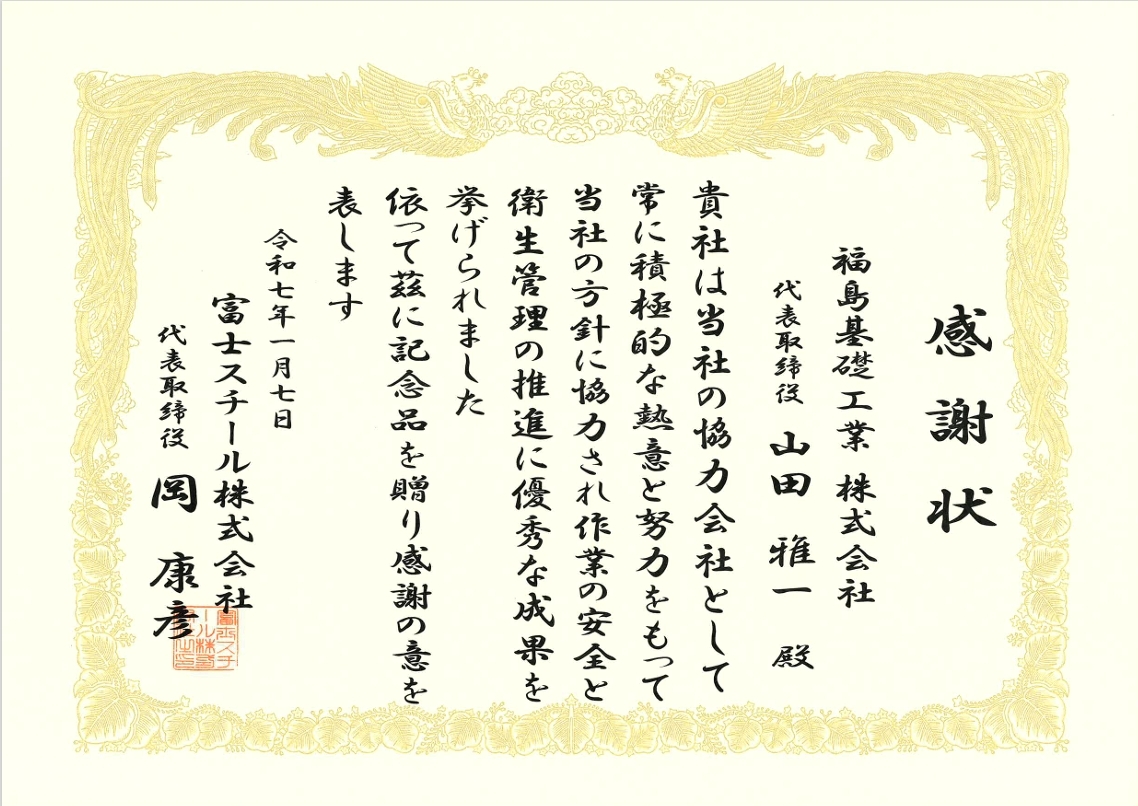 感謝状
福島基礎工業 株式会社
代表取締役 山田 雅一 殿
貴社は当社の協力会社として
常に積極的な熱意と努力をもって
当社の方針に協力され作業の安全と
衛生管理の推進に優秀な成果を
挙げられました
依って茲に記念品を贈り感謝の意を
表します
令和七年一月七日
富士スチール株式会社
代表取締役 岡 康彦
富士スチ
ール株式